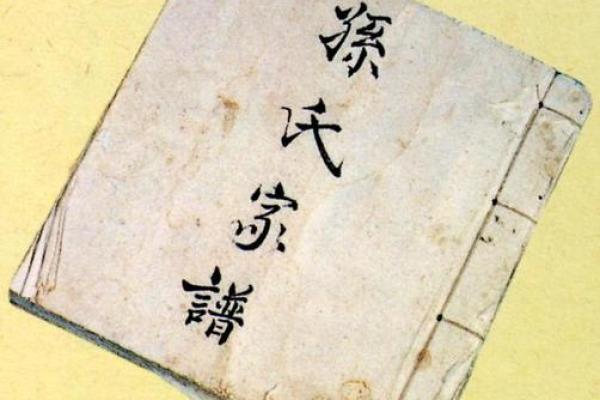 孫氏家譜